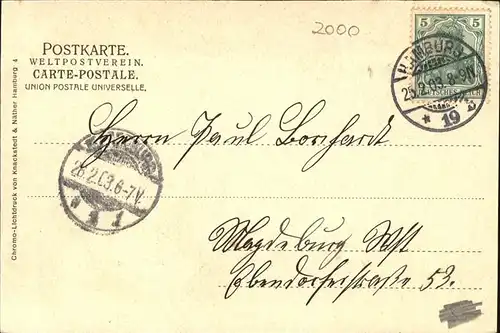 2000
POSTKARTE.
WELTPOSTVEREIN.
CARTE-POSTALE.
UNION POSTALE UNIVERSELLE.
5 5
DEUTSCHES REICH
HAMBURG
25.2.03.8-9N.
* 19
Herrn Paul Borchardt
26.2.03.6-7V.
* 1
Magdeburg Wst
Ebendorferstraße 53.
Chromo-Lichtdruck von Knackstedt & Näther Hamburg 4